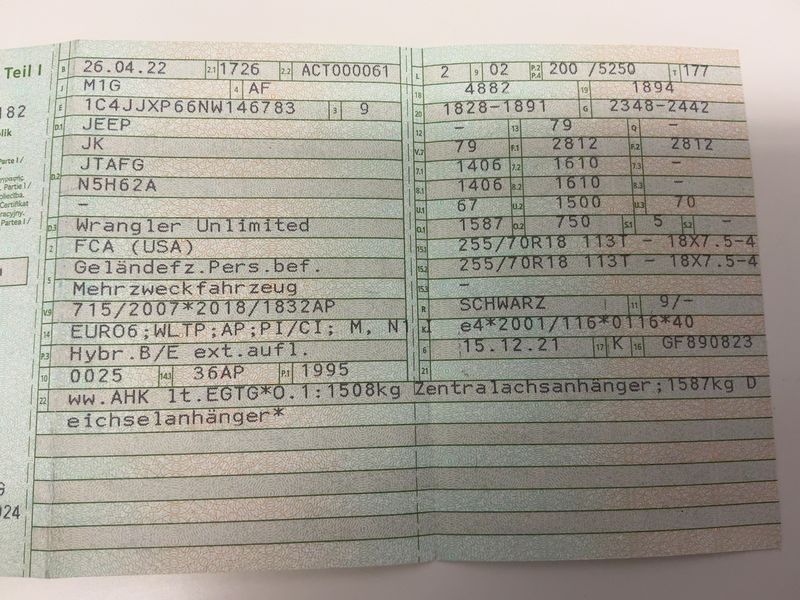 Teil I
B 26.04.22 2.1 1726 2.2 ACT000061
J M1G 4 AF
E 1C4JJXP66NW146783 3 9
D.1 JEEP
JK
D.2 JTAFG
N5H62A
–
D.3 Wrangler Unlimited
2 FCA (USA)
5 Geländefz.Pers.bef.
Mehrzweckfahrzeug
V.9 715/2007*2018/1832AP
14 EURO6;WLTP;AP;PI/CI; M, N1 I
P.3 Hybr.B/E ext.aufl.
10 0025 14.1 36AP P.1 1995
L 2 9 02 P.2 P.4 200 /5250 T 177
18 4882 19 1894
20 1828-1891 G 2348-2442
12 – 13 79 Q –
V.7 79 F.1 2812 F.2 2812
7.1 1406 7.2 1610 7.3 –
8.1 1406 8.2 1610 8.3 –
U.1 67 U.2 1500 U.3 70
O.1 1587 O.2 750 S.1 5 S.2 –
15.1 255/70R18 113T – 18X7.5-4
15.2 255/70R18 113T – 18X7.5-4
15.3 –
R SCHWARZ 11 9/–
K e4*2001/116*0116*40
6 15.12.21 17 K 16 GF890823
21
22 ww.AHK lt.EGTG*O.1:1508kg Zentralachsanhänger;1587kg D
eichselanhänger*
182
Parte I /
Partie I /
024